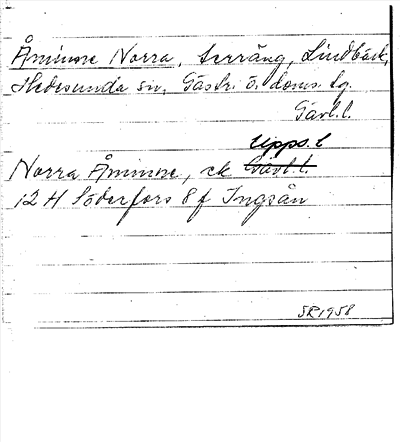 Åminne Norra, terräng, Lindbäck,
Hedesunda sn, Gästr. ö. doms. tg.
Gävl.l.
Upps. l
Norra Åminne, ek Gävl.l.
12 H Söderfors 8 f Ingsån
SR 1958